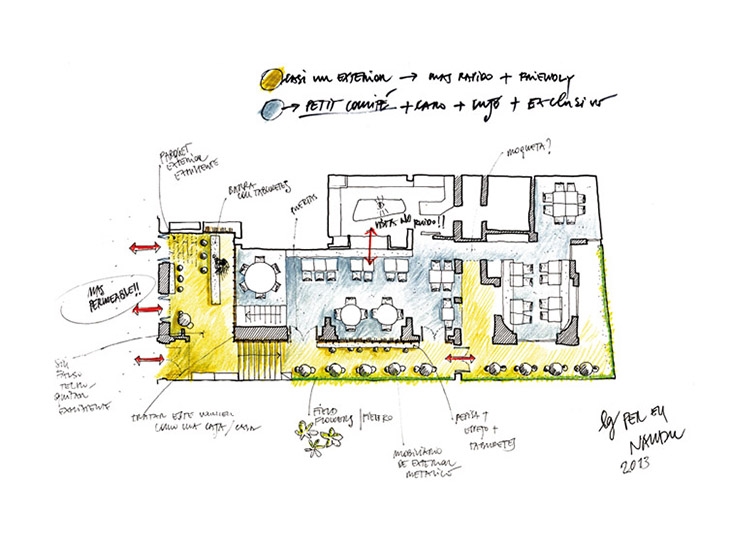 CASI UN EXTERIOR → MAS RAPIDO + FRIENDLY
→ PETIT COMITÉ + CARO + LUJO + EXCLUSIVO
PARQUET
EXTERIOR
EXISTENTE
BARRA
CON TABURETES
MOQUETA?
VISTA NO RUIDO!!
MAS
PERMEABLE!!
SIN
FALSO
TECHO
EXISTENTE
TRATAR ESTE
COMO UNA CAJA/CASA
FIELD
FLOWERS
MOBILIARIO
DE EXTERIOR
METALICO
ESPEJO +
TABURETES
PER EN
NANDU
2013